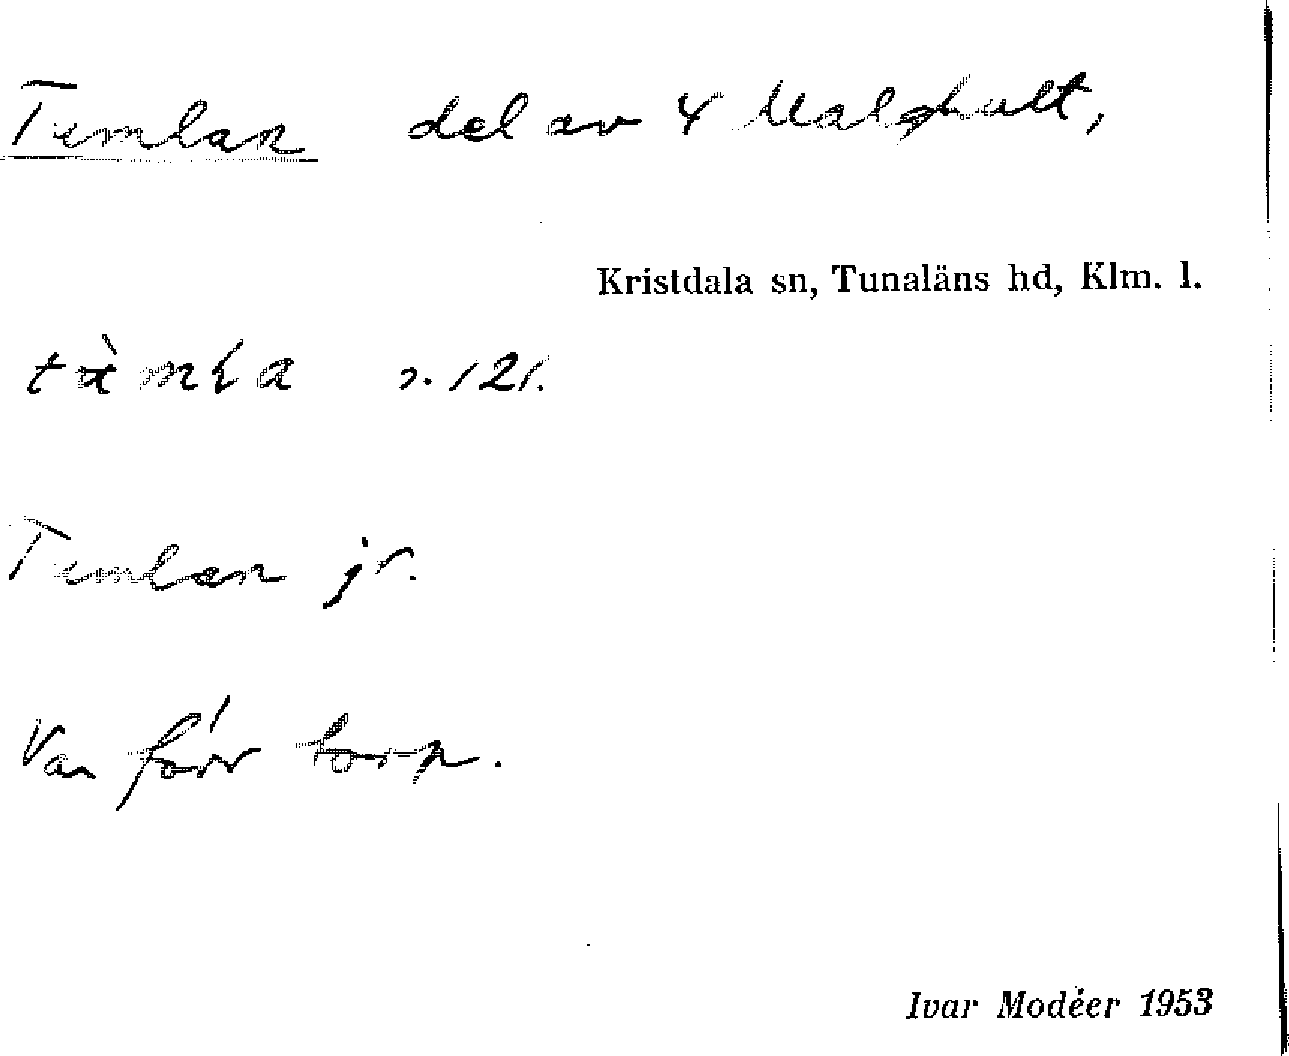 Tumlan del av 4 Malghult,
Kristdala sn, Tunaläns hd, Klm. l.
s. 121.
Tumlan jr.
Var förr torp.
Ivar Modéer 1953